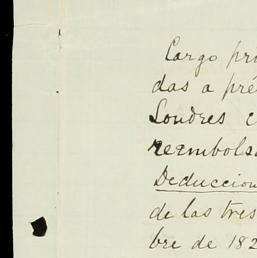 Cargo pri
das a pré
Londres c
reembols
Deduccion
de las tres
bre de 182